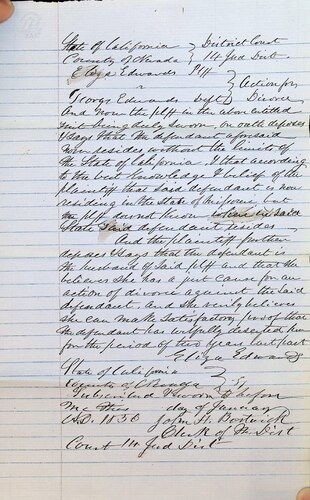 State of California } District Court
County of Nevada } 14 Jud Dist.
Eliza Edwards Plff
vs } Action for
George Edwards Deft } Divorce
And now the plff in the above entitled
suit being duly sworn, on oath deposes
& says that the defendant aforesaid
now resides without the limits of
the State of California & that according
to the best knowledge & belief of the
plaintiff that said defendant is now
residing in the state of but
the plff does not know where in said
State said defendant resides
And the plaintiff further
deposes & says that the defendant is
the husband of said plff and that she
believes she has a just cause for an
action of divorce against the said
defendant - and she verily believes
she can make satisfactory proof that
the defendant has wilfully deserted her
for the period of two years last past
Eliza Edwards
State of California
County of Nevada } SS
Subscribed & sworn to before
me this day of January
A.D. John H. Bostwick
Clerk of the Dist
Court 14 Jud Dist